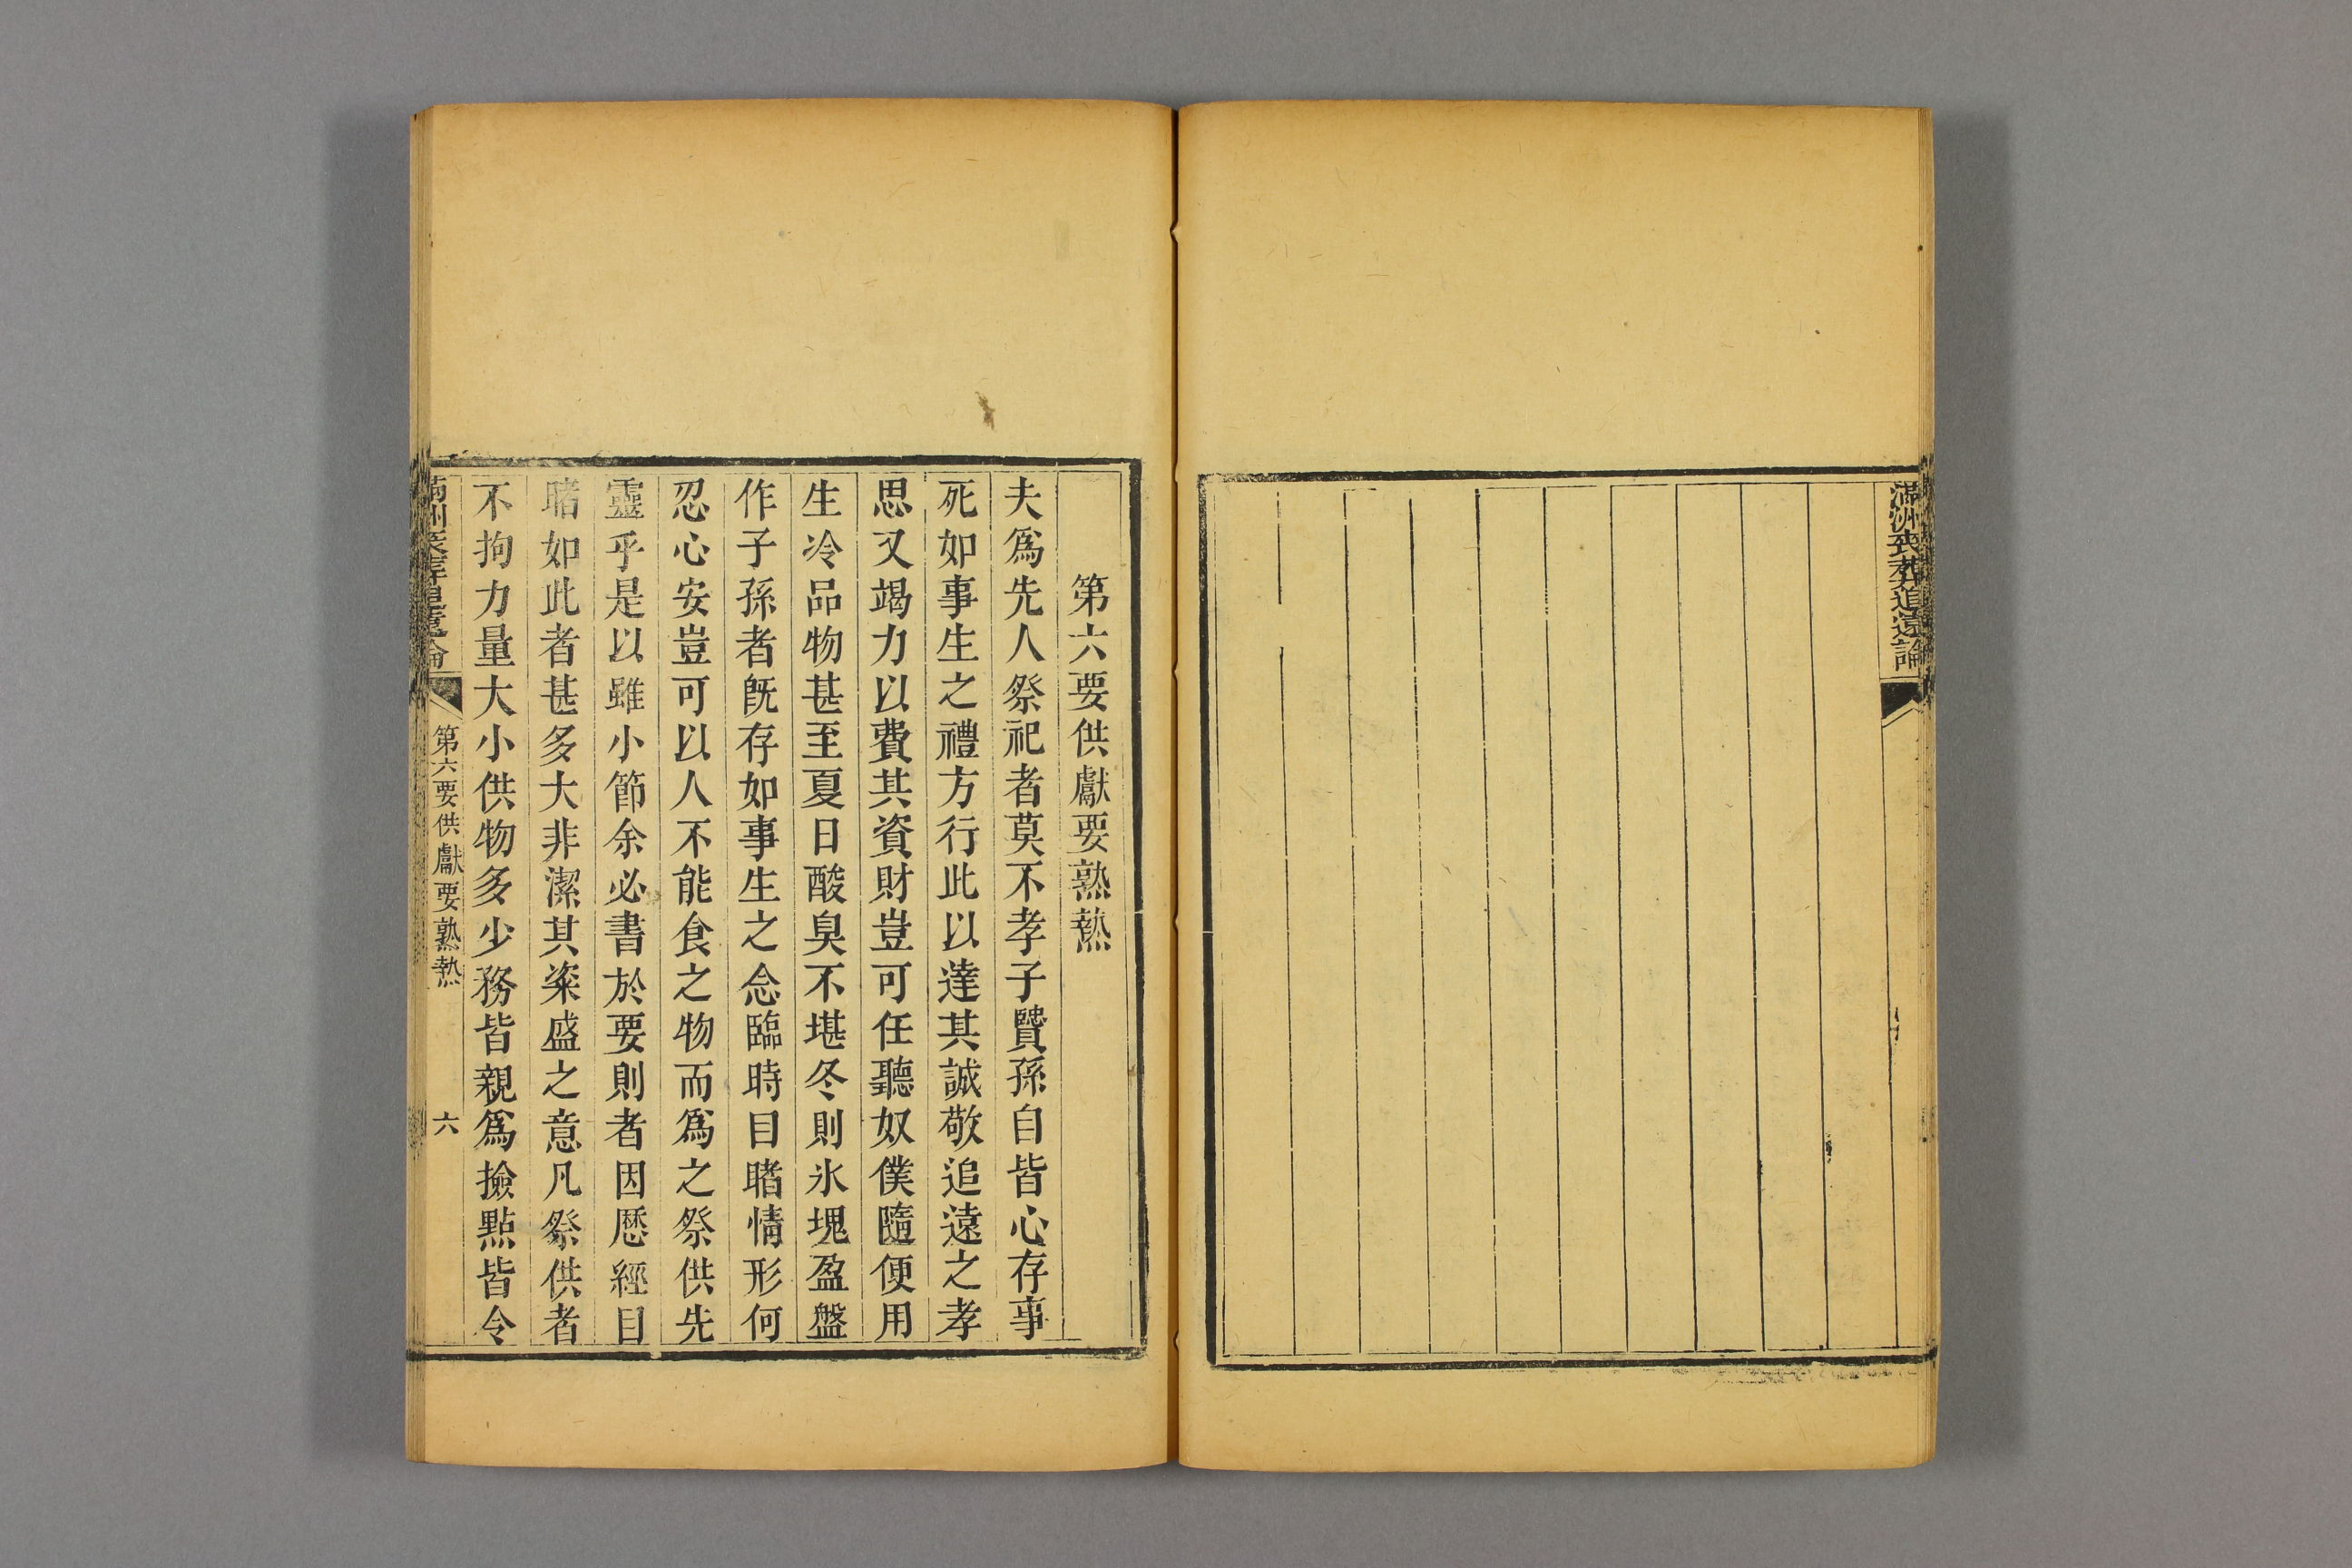 滿洲喪葬追遠論
第六要供獻要熟熱
夫爲先人祭祀者莫不孝子賢孫自皆心存事
死如事生之禮方行此以達其誠敬追遠之孝
思又竭力以費其資財豈可任聽奴僕隨便用
生冷品物甚至夏日酸臭不堪冬則氷塊盈盤
作子孫者旣存如事生之念臨時目睹情形何
忍心安豈可以人不能食之物而爲之祭供先
靈乎是以雖小節余必書於要則者因歷經目
睹如此者甚多大非潔其粢盛之意凡祭供者
不拘力量大小供物多少務皆親爲撿點皆令
滿洲喪葬追遠論
第六要供獻要熟熱
六